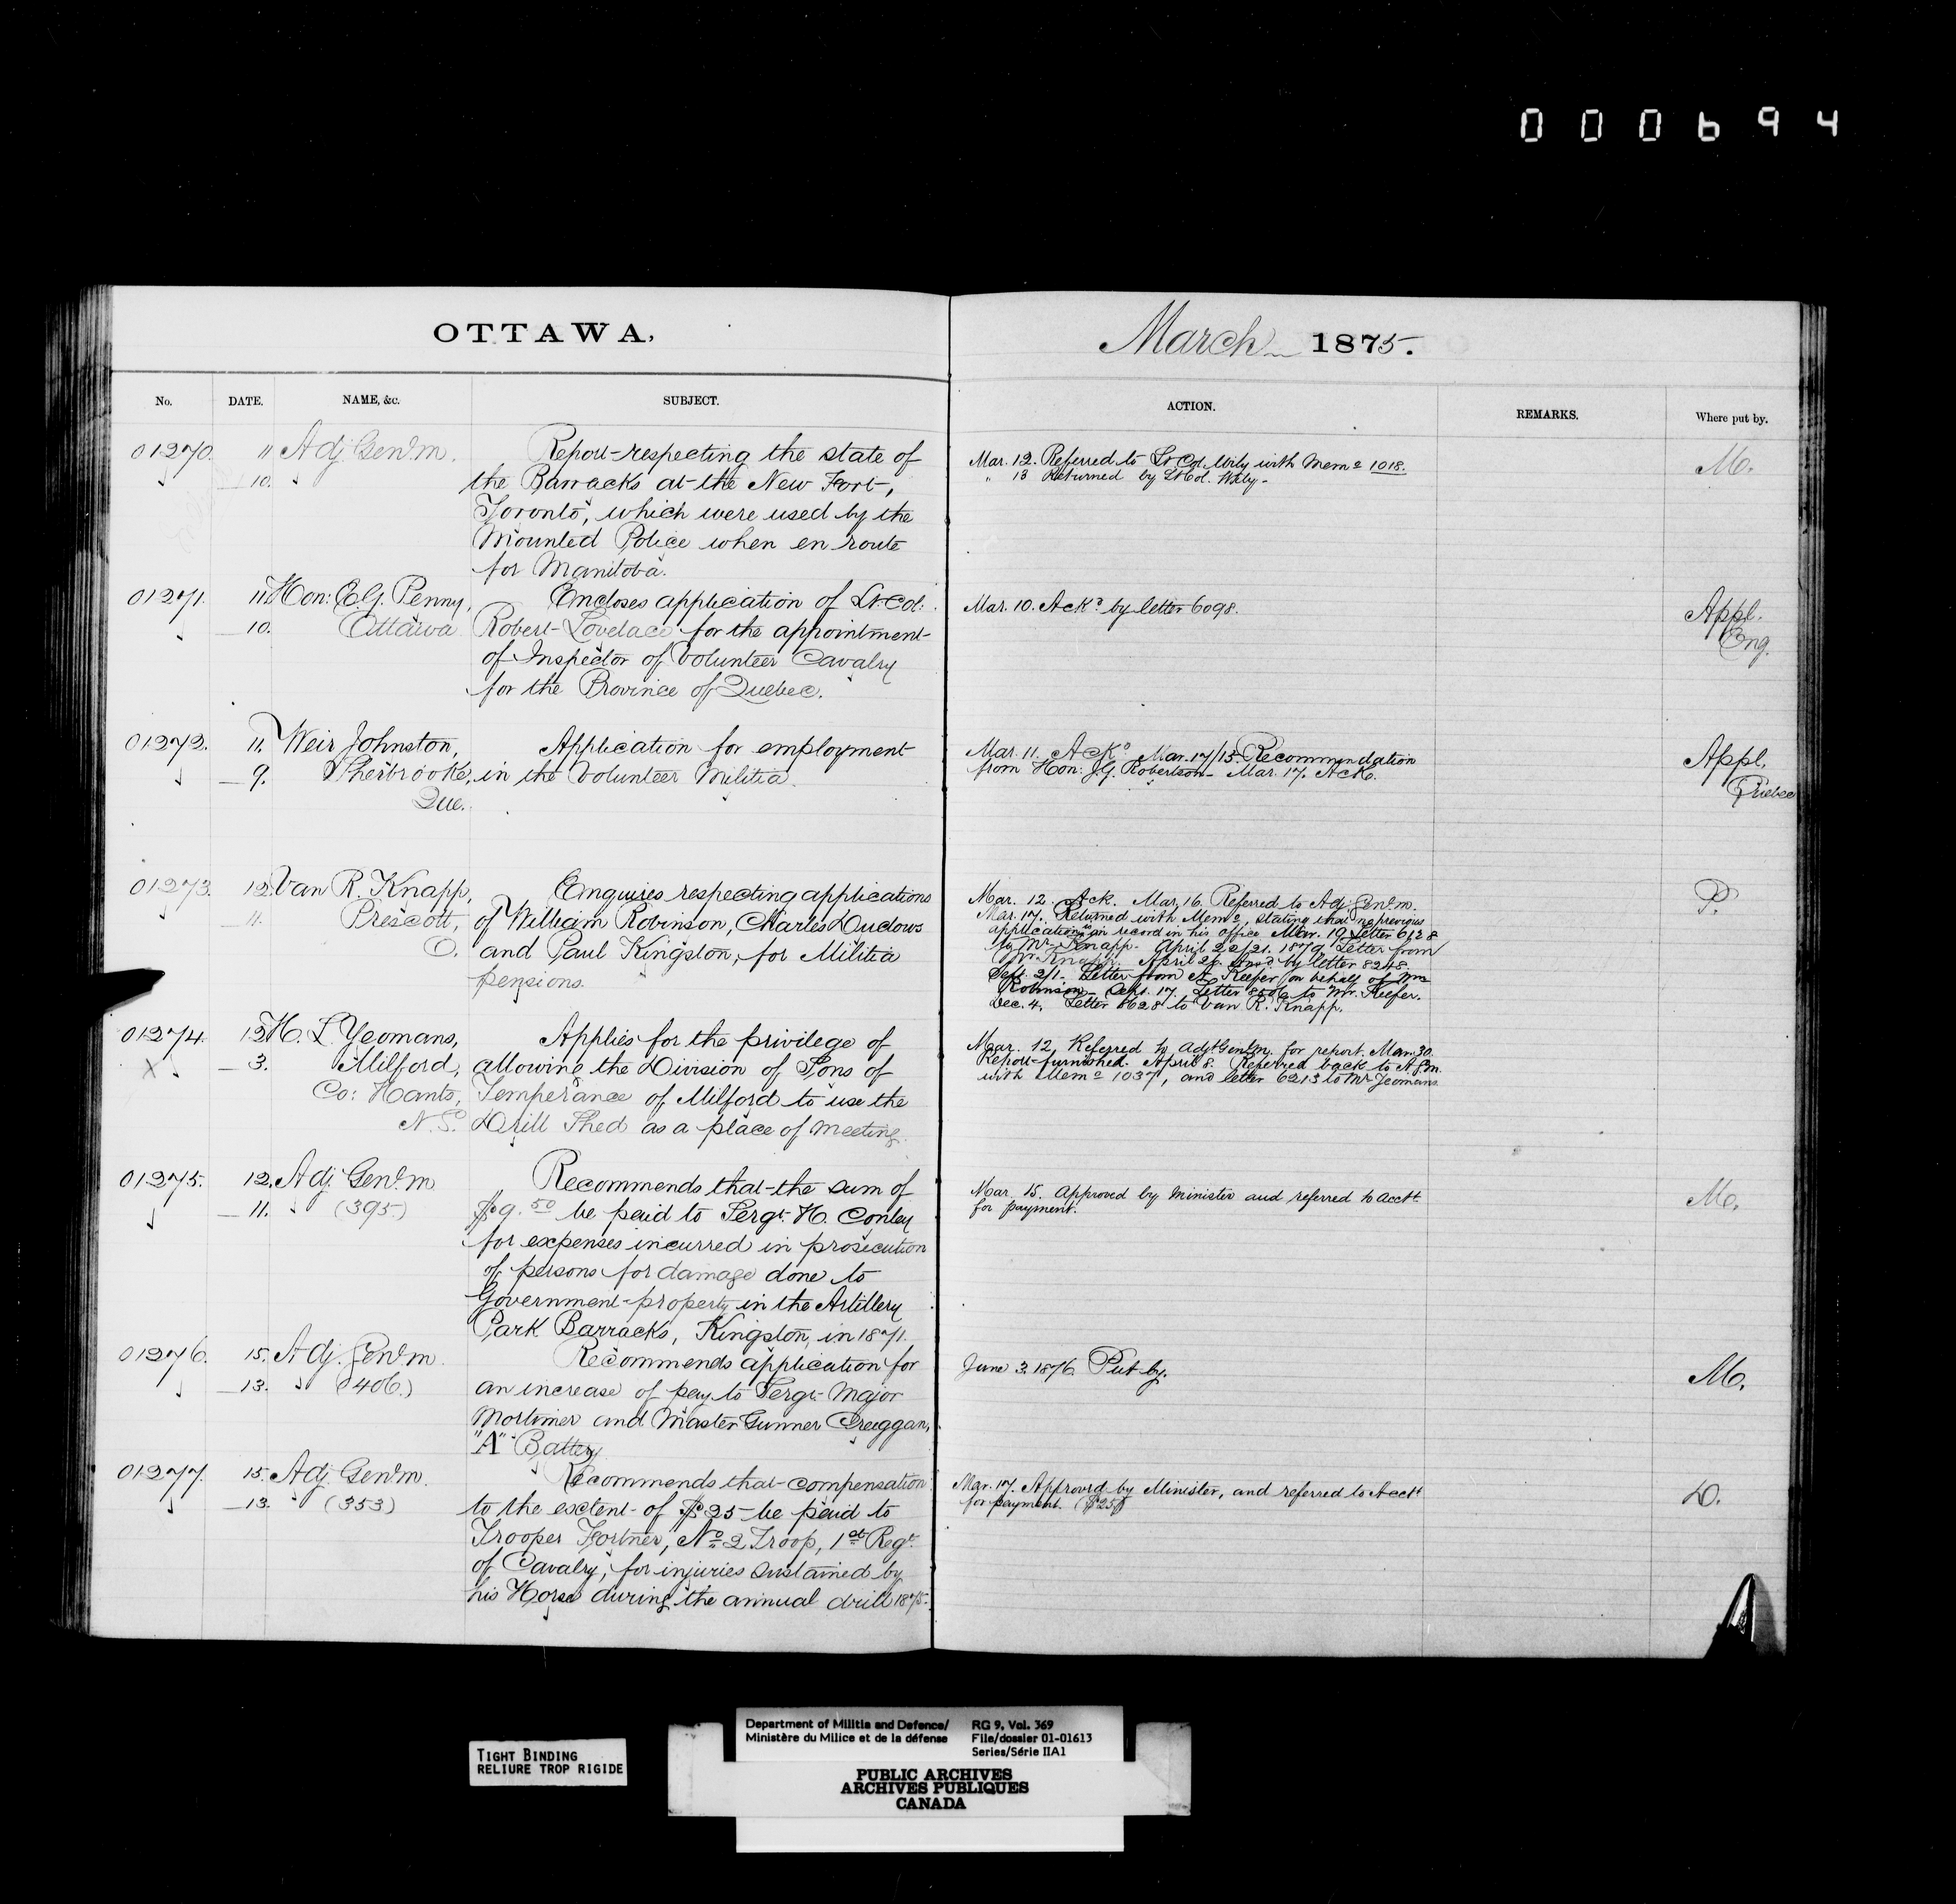 000694
OTTAWA,
March 1875.
No.
DATE.
NAME, &c.
SUBJECT.
ACTION.
REMARKS.
Where put by.
01270. 11 Adj. Genl. m. Report respecting the state of
10. the Barracks at the New Fort,
Toronto, which were used by the
Mounted Police when en route
for Manitoba.
Mar. 12. Referred to Lt. Col. Wily with Memo 1018.
" 13 Returned by Lt Col. Wily -
M.
01271. 11. Hon: E.G. Penny, Encloses application of Lt. Col:
10. Ottawa Robert Lovelace for the appointment
of Inspector of Volunteer Cavalry
for the Province of Quebec.
Mar. 10. Ackd by letter 6098.
Appl.
Eng.
01272. 11. Weir Johnston, Application for employment
9. Sherbrooke, in the Volunteer Militia.
Que.
Mar. 11. Ackd Mar. 17/15. Recommendation
from Hon: J.G. Robertson - Mar. 17. Ackd.
Appl.
Quebec
01273. 12. Van R. Knapp, Enquires respecting applications
11. Prescott, of William Robinson, Charles Ludlows
O. and Paul Kingston, for Militia
pensions.
Mar. 12. Ack. Mar. 16. Referred to Adj. Genl. m.
Mar. 17. Returned with Memo, stating that no previous
applications on record in his office. Mar. 19 Letter 6128
to Mr. Knapp. April 22/21. 1879. Letter from
Mr. Knapp. April 26. by letter 8248.
Sept. 2/1. Letter from A. Keefer on behalf of Mrs
Robinson - Sept. 17. Letter 8506 to Mr. Keefer.
Dec. 4. Letter 8628 to Van R. Knapp.
P.
01274. 12 H. L. Yeomans, Applies for the privilege of
X 3. Milford, allowing the Division of Sons of
Co: Hants, Temperance of Milford to use the
N.S. Drill Shed as a place of meeting.
Mar. 12. Referred to Adjt. Genl. m. for report. Mar. 30.
Report furnished. April 8. Referred back to A.G.m.
with Memo 1037, and letter 6213 to Mr Yeomans.
01275. 12. Adj. Genl. m Recommends that the sum of
11. (395) $9.50 be paid to Sergt. H. Conley
for expenses incurred in prosecution
of persons for damage done to
Government property in the Artillery
Park Barracks, Kingston, in 1871.
Mar. 15. Approved by Minister and referred to Acctt.
for payment.
M.
01276. 15. Adj. Genl. m Recommends application for
13. (406.) an increase of pay to Sergt. Major
Mortimer and Master Gunner Creggan,
"A" Battery
June 3. 1876. Put by.
M.
01277. 15. Adj. Genl. m. Recommends that compensation
13. (353) to the extent of $25 be paid to
Trooper Fortner, No 2 Troop, 1st Regt.
of Cavalry, for injuries sustained by
his Horse during the annual drill 1875.
Mar. 17. Approved by Minister, and referred to Acctt
for payment. ($25)
D.
TIGHT BINDING
RELIURE TROP RIGIDE
Department of Militia and Defence/
Ministère du Milice et de la défense
RG 9, Vol. 369
File/dossier 01-01613
Series/Série IIA1
PUBLIC ARCHIVES
ARCHIVES PUBLIQUES
CANADA